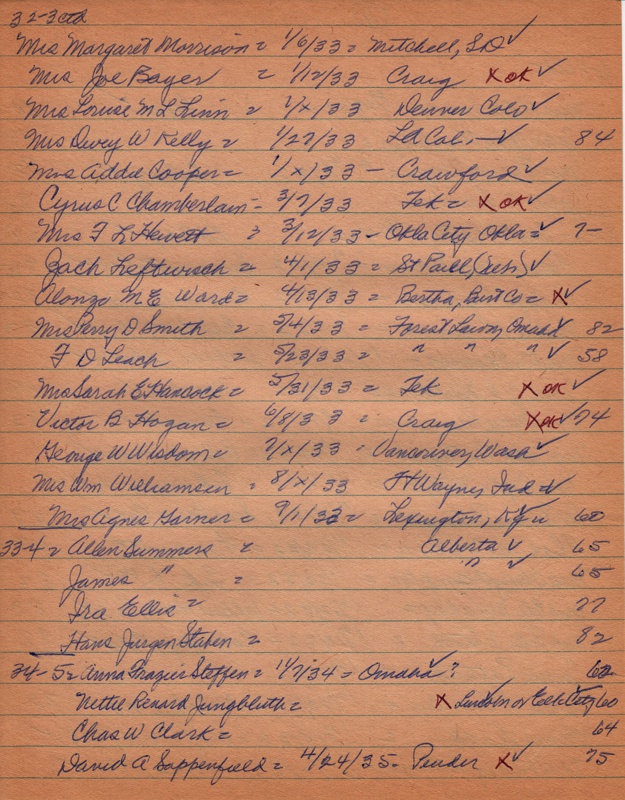 32-3ctd
Mrs Margaret Morrison = 1/6/33 = Mitchell, SD ✓
Mrs Joe Bayer = 1/12/33 Craig X OK ✓
Mrs Louise M L Linn = 1/x/33 Denver Colo ✓
Mrs Dwey W Kelly = 1/27/33 Cal. — ✓ 84
Mrs Addie Cooper = 1/x/33 - Crawford ✓
Cyrus C Chamberlain = 3/7/33 Tek = X OK ✓
Mrs F L Hevett = 3/12/33 - Okla City Okla = ✓ 7-
Jach Leftwisch = 4/1/33 = St Paul (Nebr) ✓
Alonzo M E Ward = 4/13/33 = Bertha, Burt Co = X ✓
Mrs Perry D Smith = 5/4/33 = Forest Lawn, Omaha ✓ 82
F D Leach = 5/23/33 = " " " ✓ 58
Mrs Sarah E Hancock = 5/31/33 = Tek X OK ✓
Victor B Hogan = 6/8/33 = Craig X OK ✓ 74
George W Wisdom = 7/x/33 - Vancouver, Wash ✓
Mrs Wm Williamsen = 8/x/33 Ft Wayne, Ind = ✓
Mrs Agnes Garner = 9/1/33 = Lexington, Ky ✓ 60
33-4 = Allen Summers = Alberta ✓ 65
James " = " ✓ 65
Ira Ellis = 77
Hans Jurgen Staben = 82
34-5 = Anna Frazier Steffen = 11/7/34 = Omaha ✓ ? 62
Nettie Renard Jungbluth = X Lincoln or Elk City 60
Chas W Clark = 64
David A Sappenfield = 4/24/35 = Pender X ✓ 75